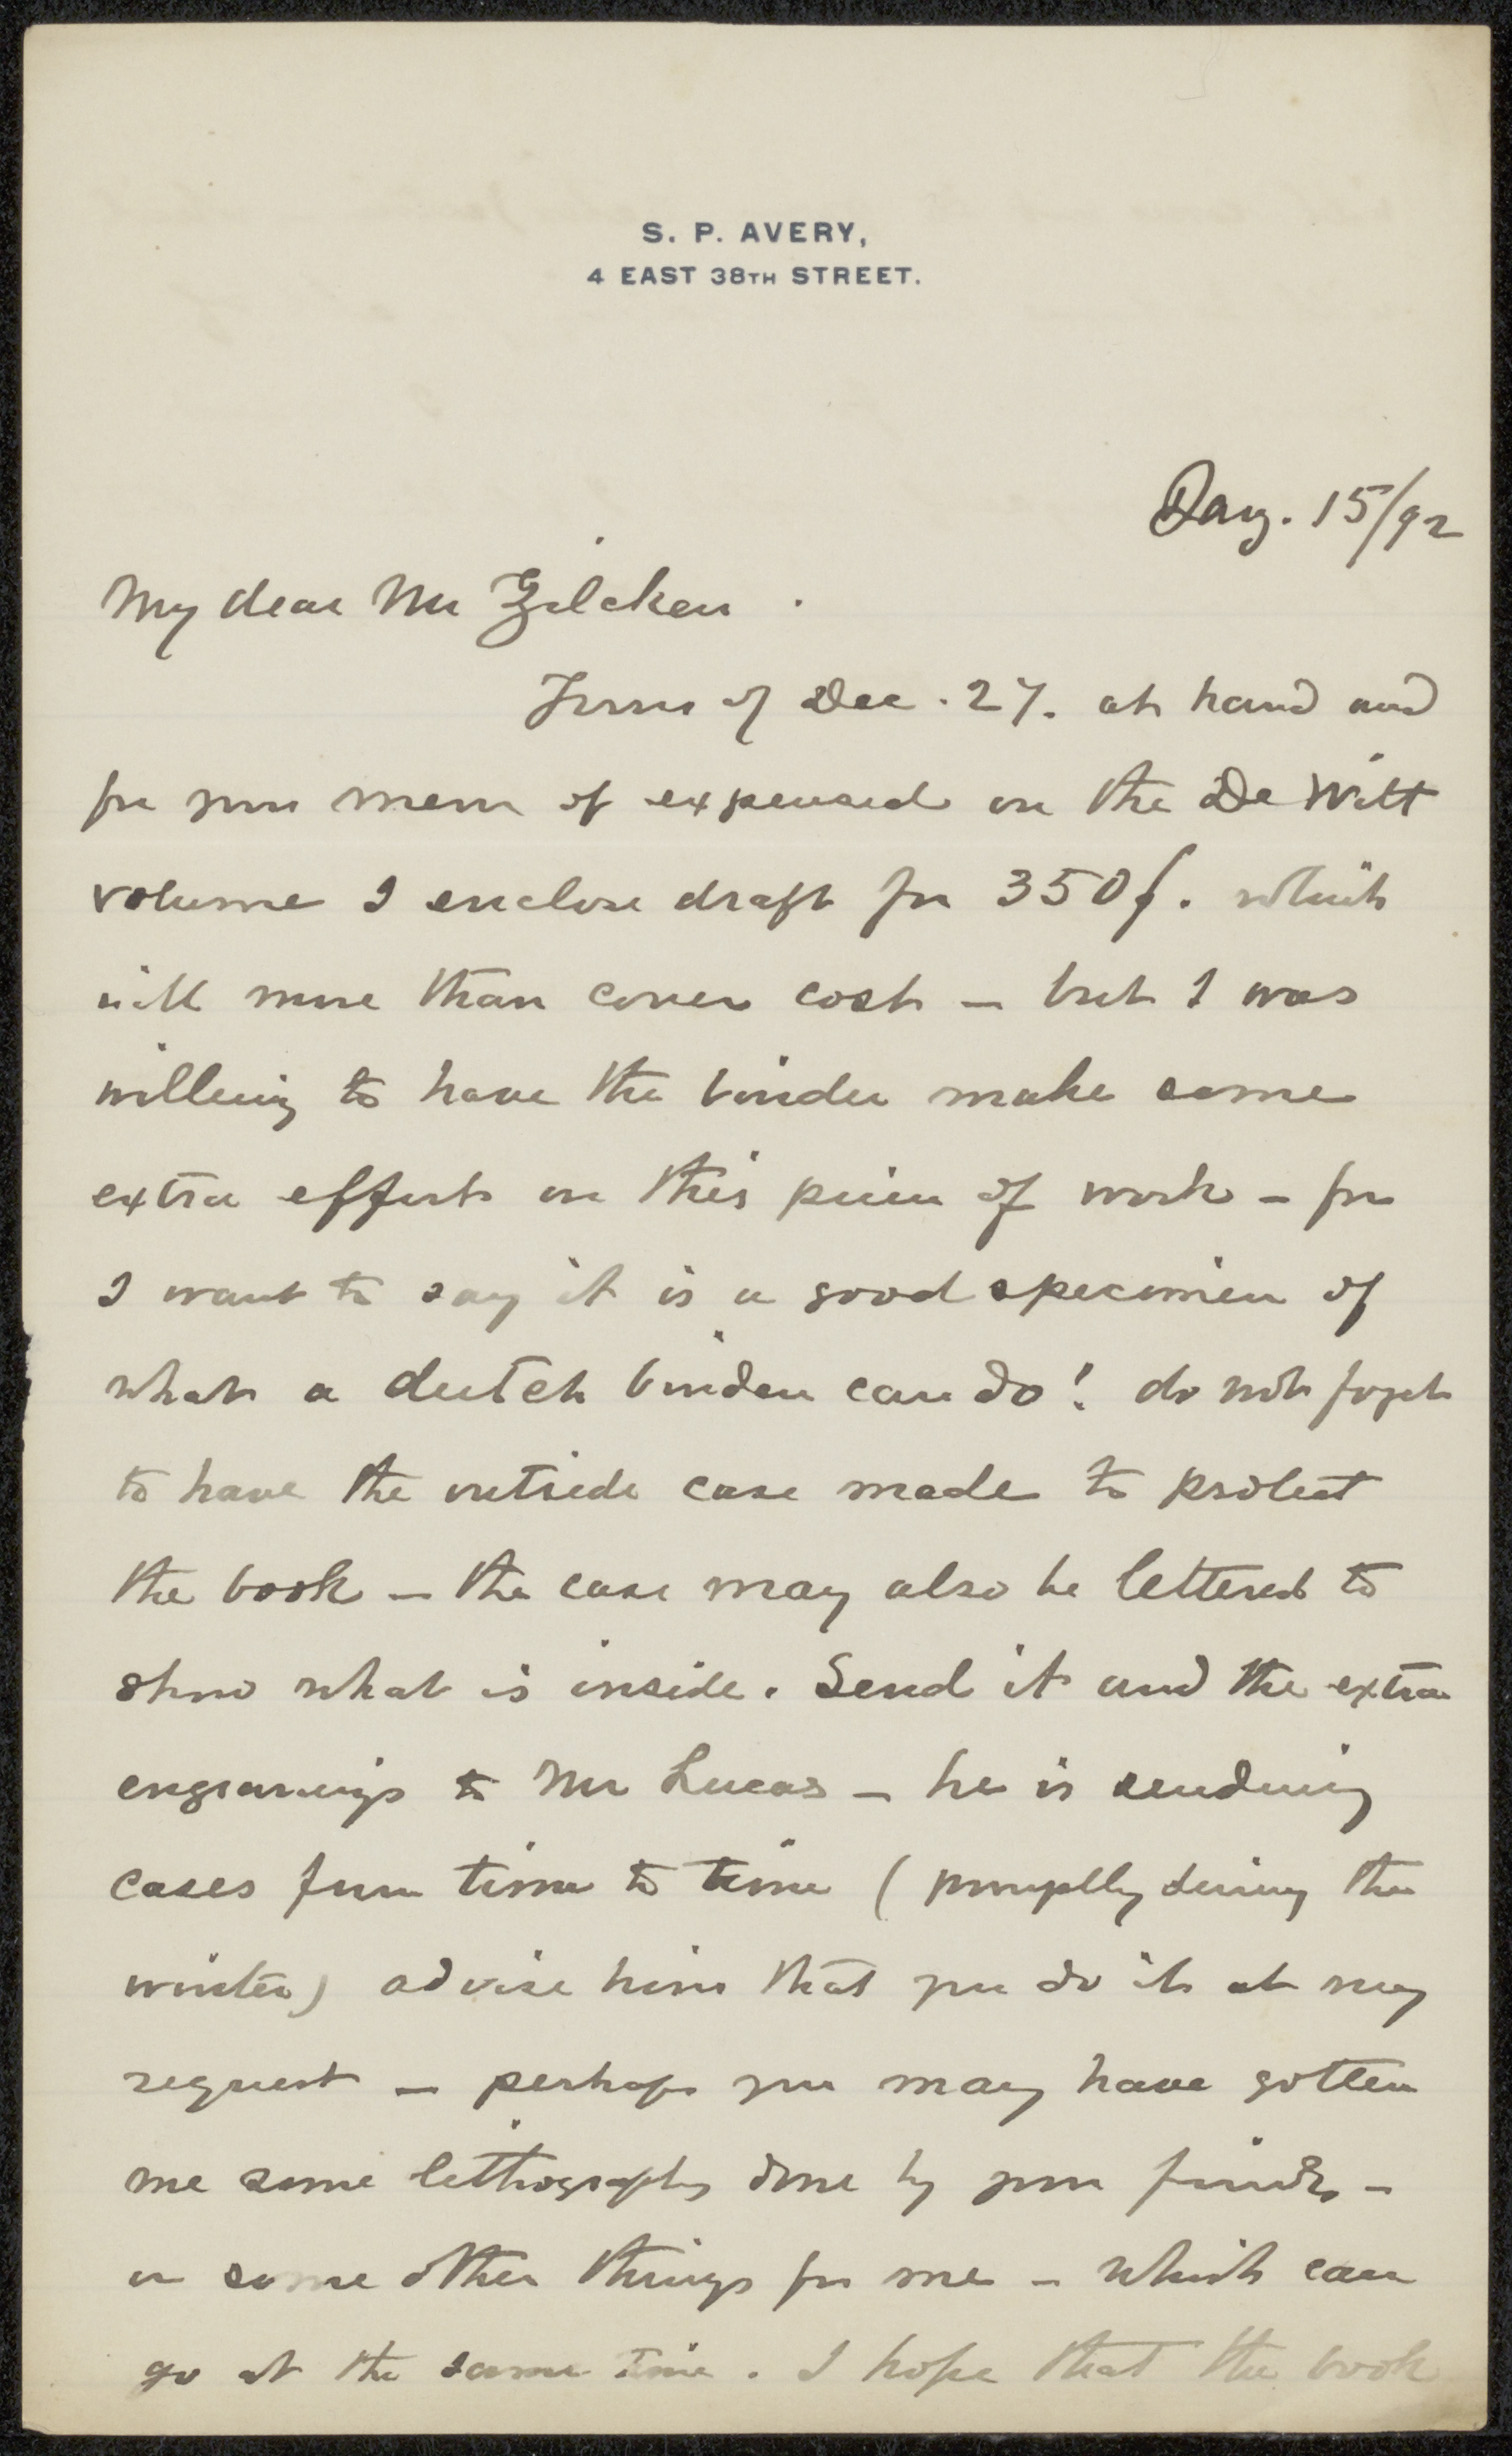 S. P. AVERY,
4 EAST 38TH STREET.
Jany. 15/92
My dear Mr Zilcken.
Yours of Dec. 27. at hand and
for your mem of expensed on the De Witt
volume I enclose draft for 350 f. which
will more than cover cost – but I was
willing to have the binder make some
extra effort on this piece of work – for
I want to say it is a good specimen of
what a dutch binder can do! do not forget
to have the outside case made to protect
the book – the case may also be lettered to
show what is inside. Send it and the extra
engravings to Mr Lucas – he is sending
cases from time to time ( promptly during the
winter) advise him that you do it at my
request – perhaps you may have gotten
me some lithographs done by your friends –
or some other things for me – which can
go at the same time. I hope that the book